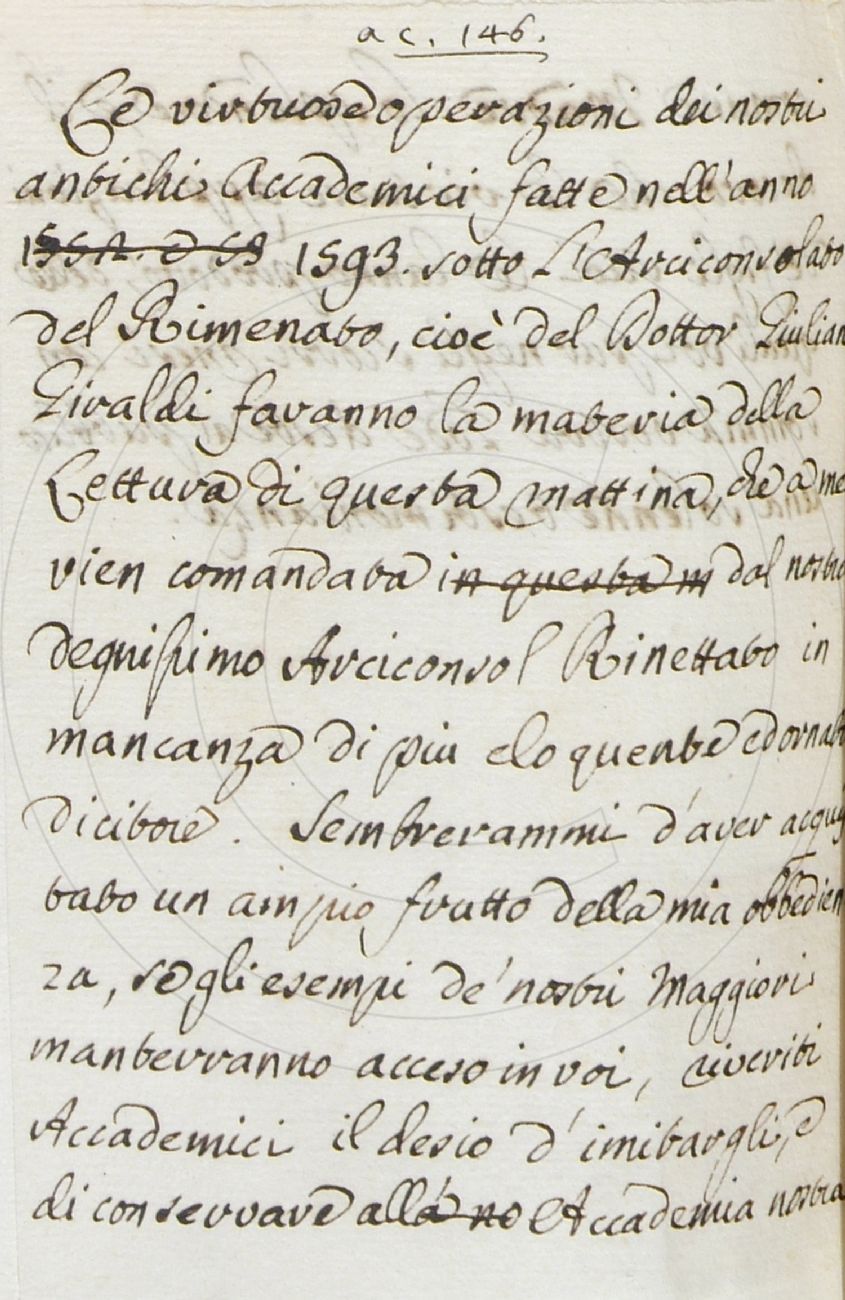 a c. 146.
Le virtuose operazioni dei nostri
antichi Accademici fatte nell'anno
1593. sotto L'Arciconsolato
del Rimenato, cioè del Dottor Giulian
Giraldi faranno la materia della
Lettura di questa mattina, che a me
vien comandata in questa m dal nostro
degnissimo Arciconsol Rinettato in
mancanza di piu eloquente ed ornato
dicitore. Sembrerammi d'aver acqui
tato un ampio frutto della mia obbedien
za, se gli esempi de' nostri Maggiori
manterranno acceso in voi, riveriti
Accademici il desio d'imitargli, e
di conservare alla no Accademia nostra